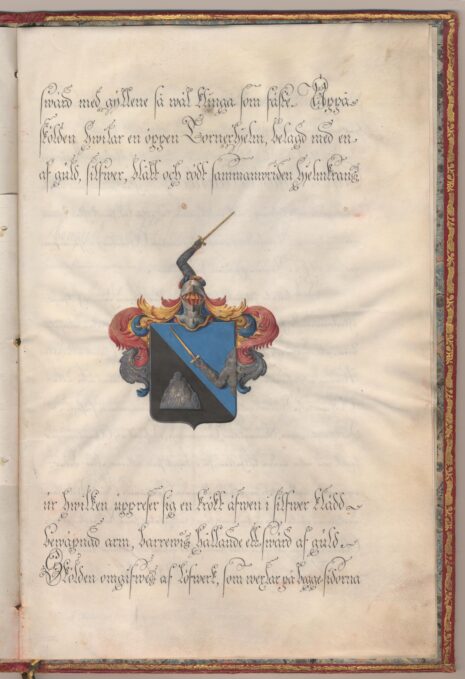 swärd med gyllene så wäl klinga som fäste. Uppå
skölden hwilar en öppen Tornerhelm, belagd med en
af guld, silfwer, blått och rödt sammanwriden hjelmkrans
ur hwilken uppreser sig en krökt äfwen i silfwer klädd
bewäpnad arm, harrewis hållande ett swärd af guld.
Skölden omgifwes af löfwerk, som wexlar på begge sidorna